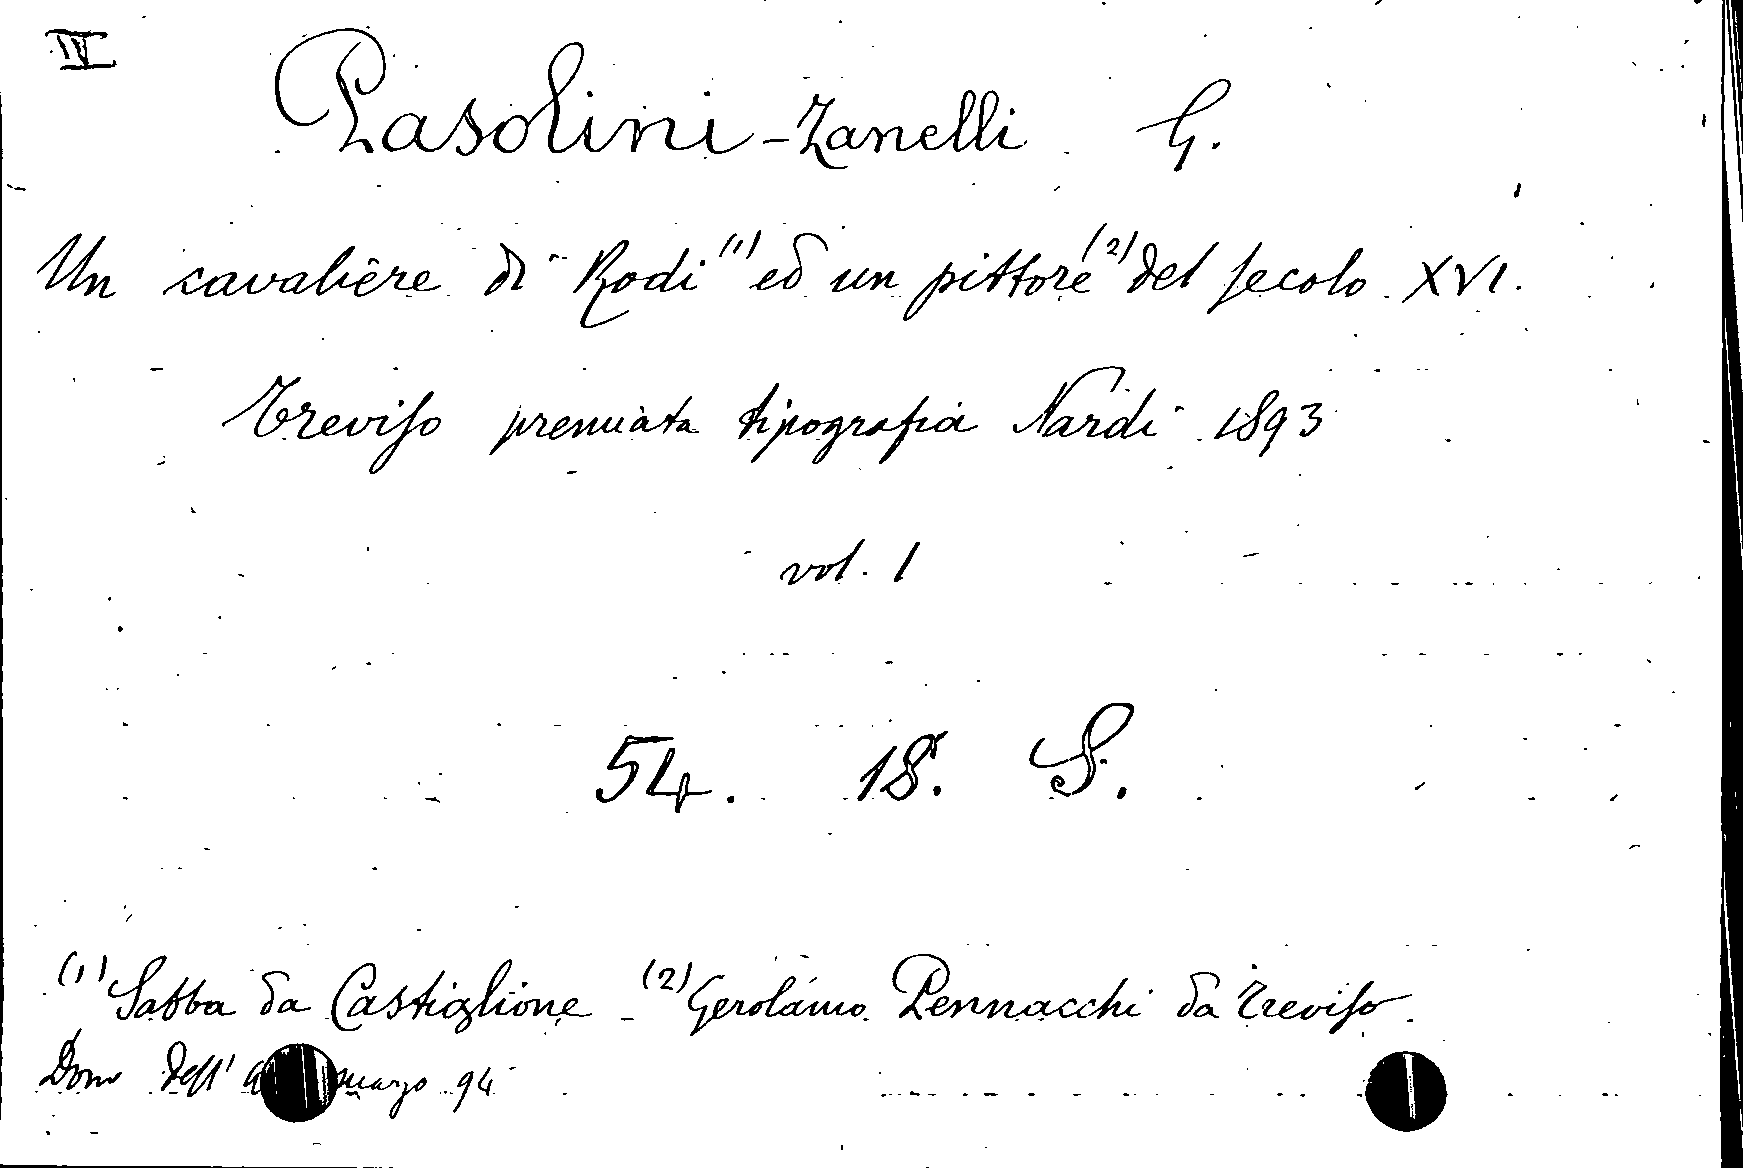 IV
Pasolini-Zanelli G.
Un cavaliere di Rodi (1) ed un pittore (2) del secolo XVI.
Treviso premiata tipografia Nardi 1893
vol. 1
54. 18. S.
(1) Sabba da Castiglione - (2) Gerolamo Pennacchi da Treviso
Dono dell' marzo 94